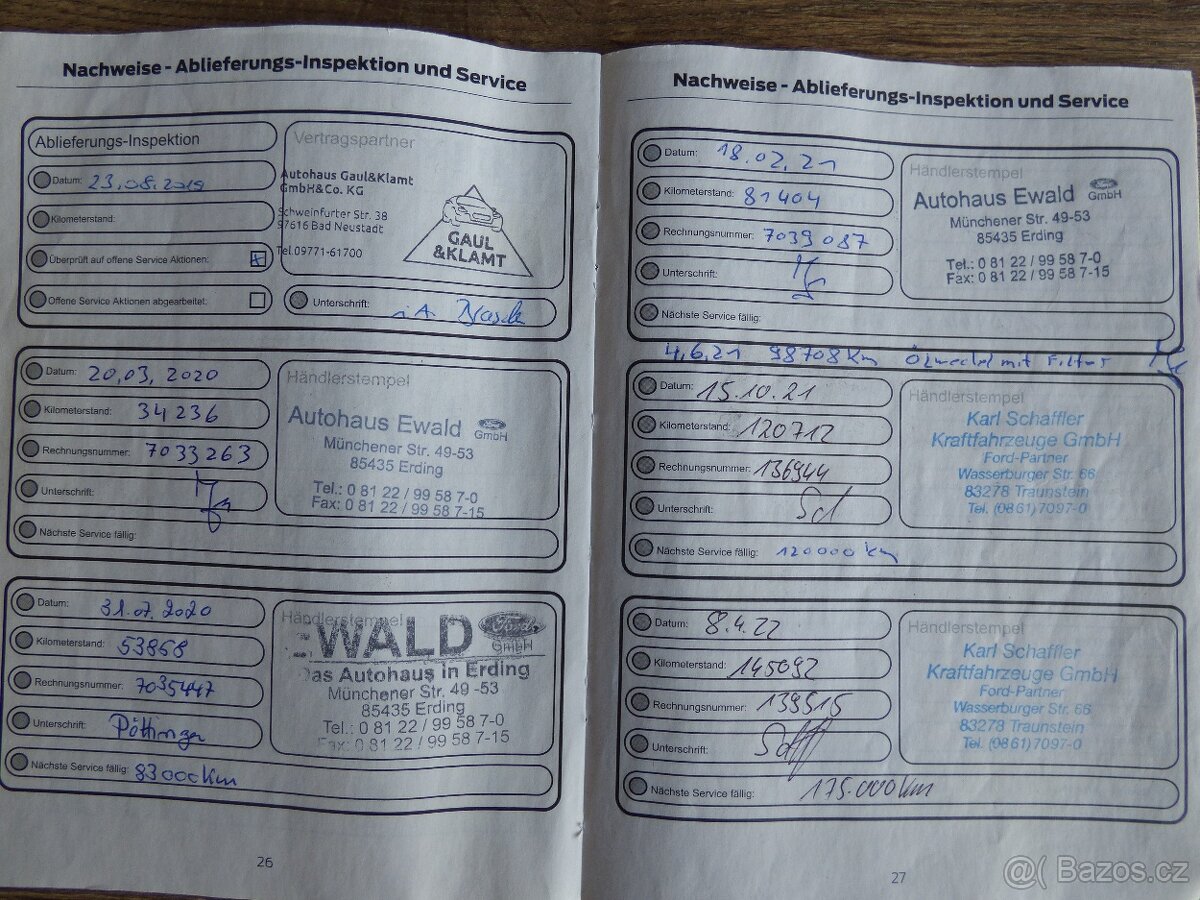 Nachweise - Ablieferungs-Inspektion und Service
Ablieferungs-Inspektion
Datum: 23.08.2019
Kilometerstand:
Überprüft auf offene Service Aktionen: x
Offene Service Aktionen abgearbeitet:
Vertragspartner
Autohaus Gaul&Klamt
GmbH&Co. KG
Schweinfurter Str. 38
97616 Bad Neustadt
Tel.09771-61700
GAUL
&KLAMT
Unterschrift: i.A.
Datum: 20,03, 2020
Kilometerstand: 34236
Rechnungsnummer: 7033263
Unterschrift:
Nächste Service fällig:
Händlerstempel
Autohaus Ewald Ford GmbH
Münchener Str. 49-53
85435 Erding
Tel.: 0 81 22 / 99 58 7-0
Fax: 0 81 22 / 99 58 7-15
Datum: 31.07.2020
Kilometerstand: 53868
Rechnungsnummer: 7035447
Unterschrift: Pöttinger
Nächste Service fällig: 83000km
Händlerstempel
EWALD Ford GmbH
Das Autohaus in Erding
Münchener Str. 49 -53
85435 Erding
Tel.: 0 81 22 / 99 58 7-0
Fax: 0 81 22 / 99 58 7-15
26
Nachweise - Ablieferungs-Inspektion und Service
Datum: 18.02.21
Kilometerstand: 81404
Rechnungsnummer: 7039087
Unterschrift:
Nächste Service fällig:
Händlerstempel
Autohaus Ewald Ford GmbH
Münchener Str. 49-53
85435 Erding
Tel.: 0 81 22 / 99 58 7-0
Fax: 0 81 22 / 99 58 7-15
4,6,21 98708km Ölwechsel mit Filter
Datum: 15.10.21
Kilometerstand: 120712
Rechnungsnummer: 136944
Unterschrift:
Nächste Service fällig: 120000km
Händlerstempel
Karl Schaffler
Kraftfahrzeuge GmbH
Ford-Partner
Wasserburger Str. 66
83278 Traunstein
Tel. (0861)7097-0
Datum: 8.4.22
Kilometerstand: 145692
Rechnungsnummer: 139515
Unterschrift:
Nächste Service fällig: 175.000km
Händlerstempel
Karl Schaffler
Kraftfahrzeuge GmbH
Ford-Partner
Wasserburger Str. 66
83278 Traunstein
Tel. (0861)7097-0
27
Bazos.cz